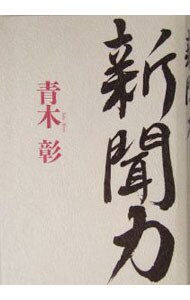 新聞力
青木 彰